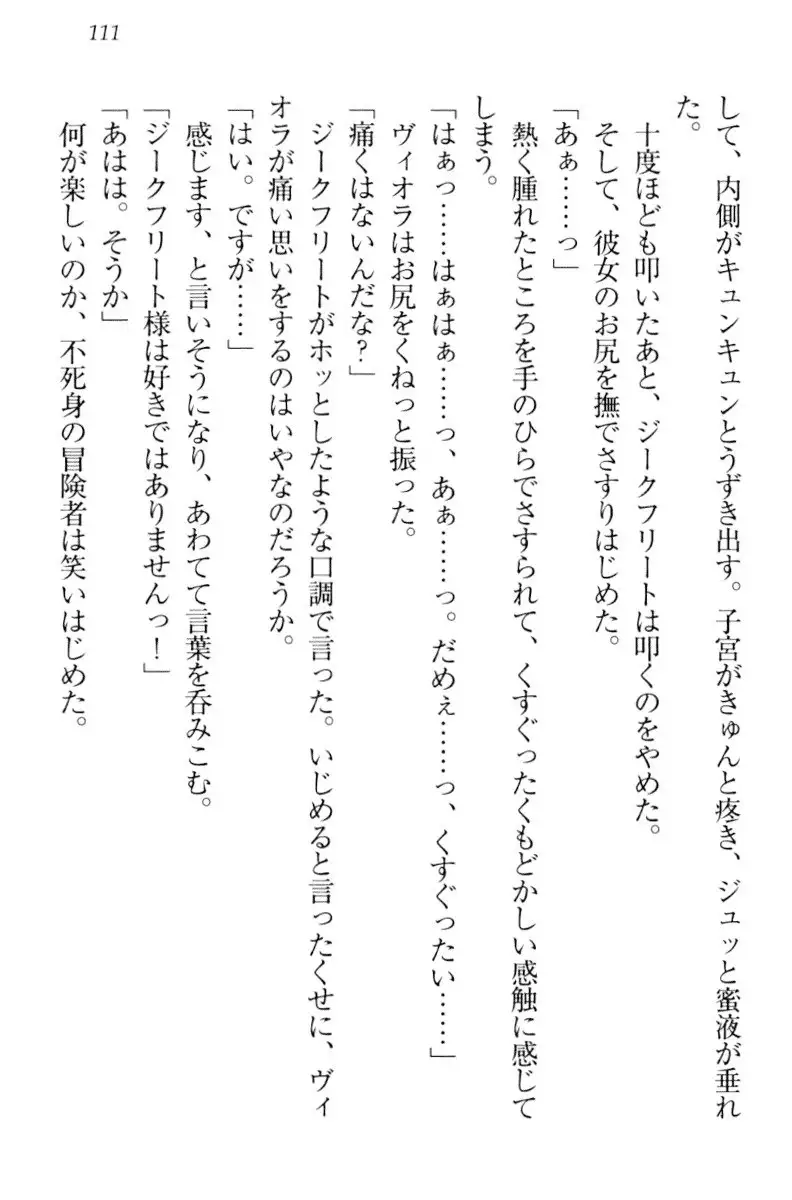 111
して、内側がキュンキュンとうずき出す。子宮がきゅんと疼き、ジュッと蜜液が垂れ
た。
十度ほども叩いたあと、ジークフリートは叩くのをやめた。
そして、彼女のお尻を撫でさすりはじめた。
「あぁ……っ」
熱く腫れたところを手のひらでさすられて、くすぐったくもどかしい感触に感じて
しまう。
「はぁっ……はぁはぁ……っ、あぁ……っ。だめぇ……っ、くすぐったい……」
ヴィオラはお尻をくねっと振った。
「痛くはないんだな？」
ジークフリートがホッとしたような口調で言った。いじめると言ったくせに、ヴィ
オラが痛い思いをするのはいやなのだろうか。
「はい。ですが……」
感じます、と言いそうになり、あわてて言葉を呑みこむ。
「ジークフリート様は好きではありませんっ！」
「あはは。そうか」
何が楽しいのか、不死身の冒険者は笑いはじめた。